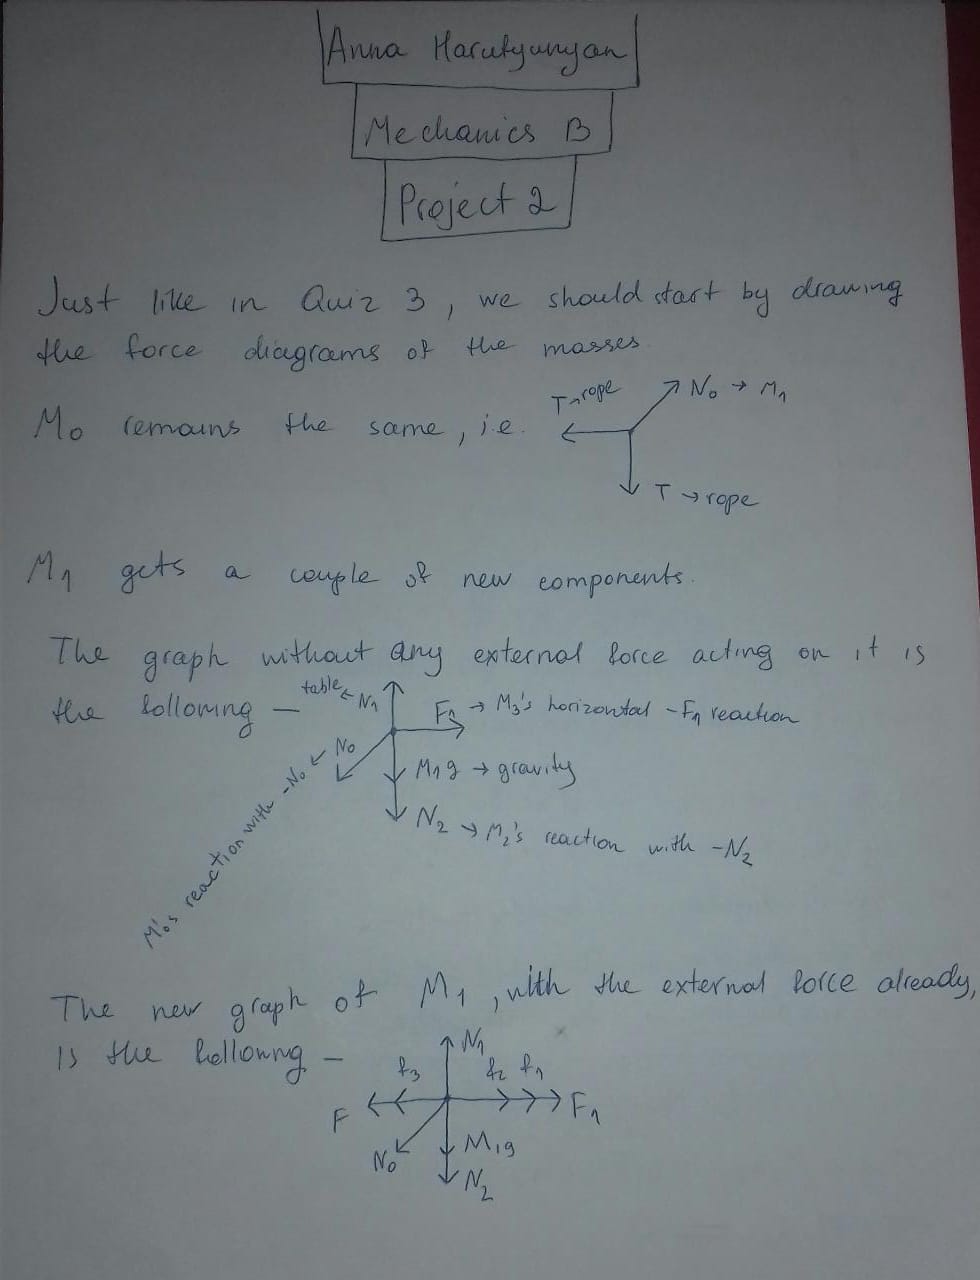 Anna Harutyunyan
Mechanics B
Project 2
Just like in Quiz 3, we should start by drawing
the force diagrams of the masses
M0 remains the same, i.e.
T → rope
N0 → M1
T → rope
M1 gets a couple of new components.
The graph without any external force acting on it is
the following —
table ← N1
F1 → M3's horizontal -F1 reaction
M0's reaction with -N0 ← N0
M1g → gravity
N2 → M2's reaction with -N2
The new graph of M1, with the external force already,
is the following —
N1
f3 f2 f1
F F1
N0 M1g
N2